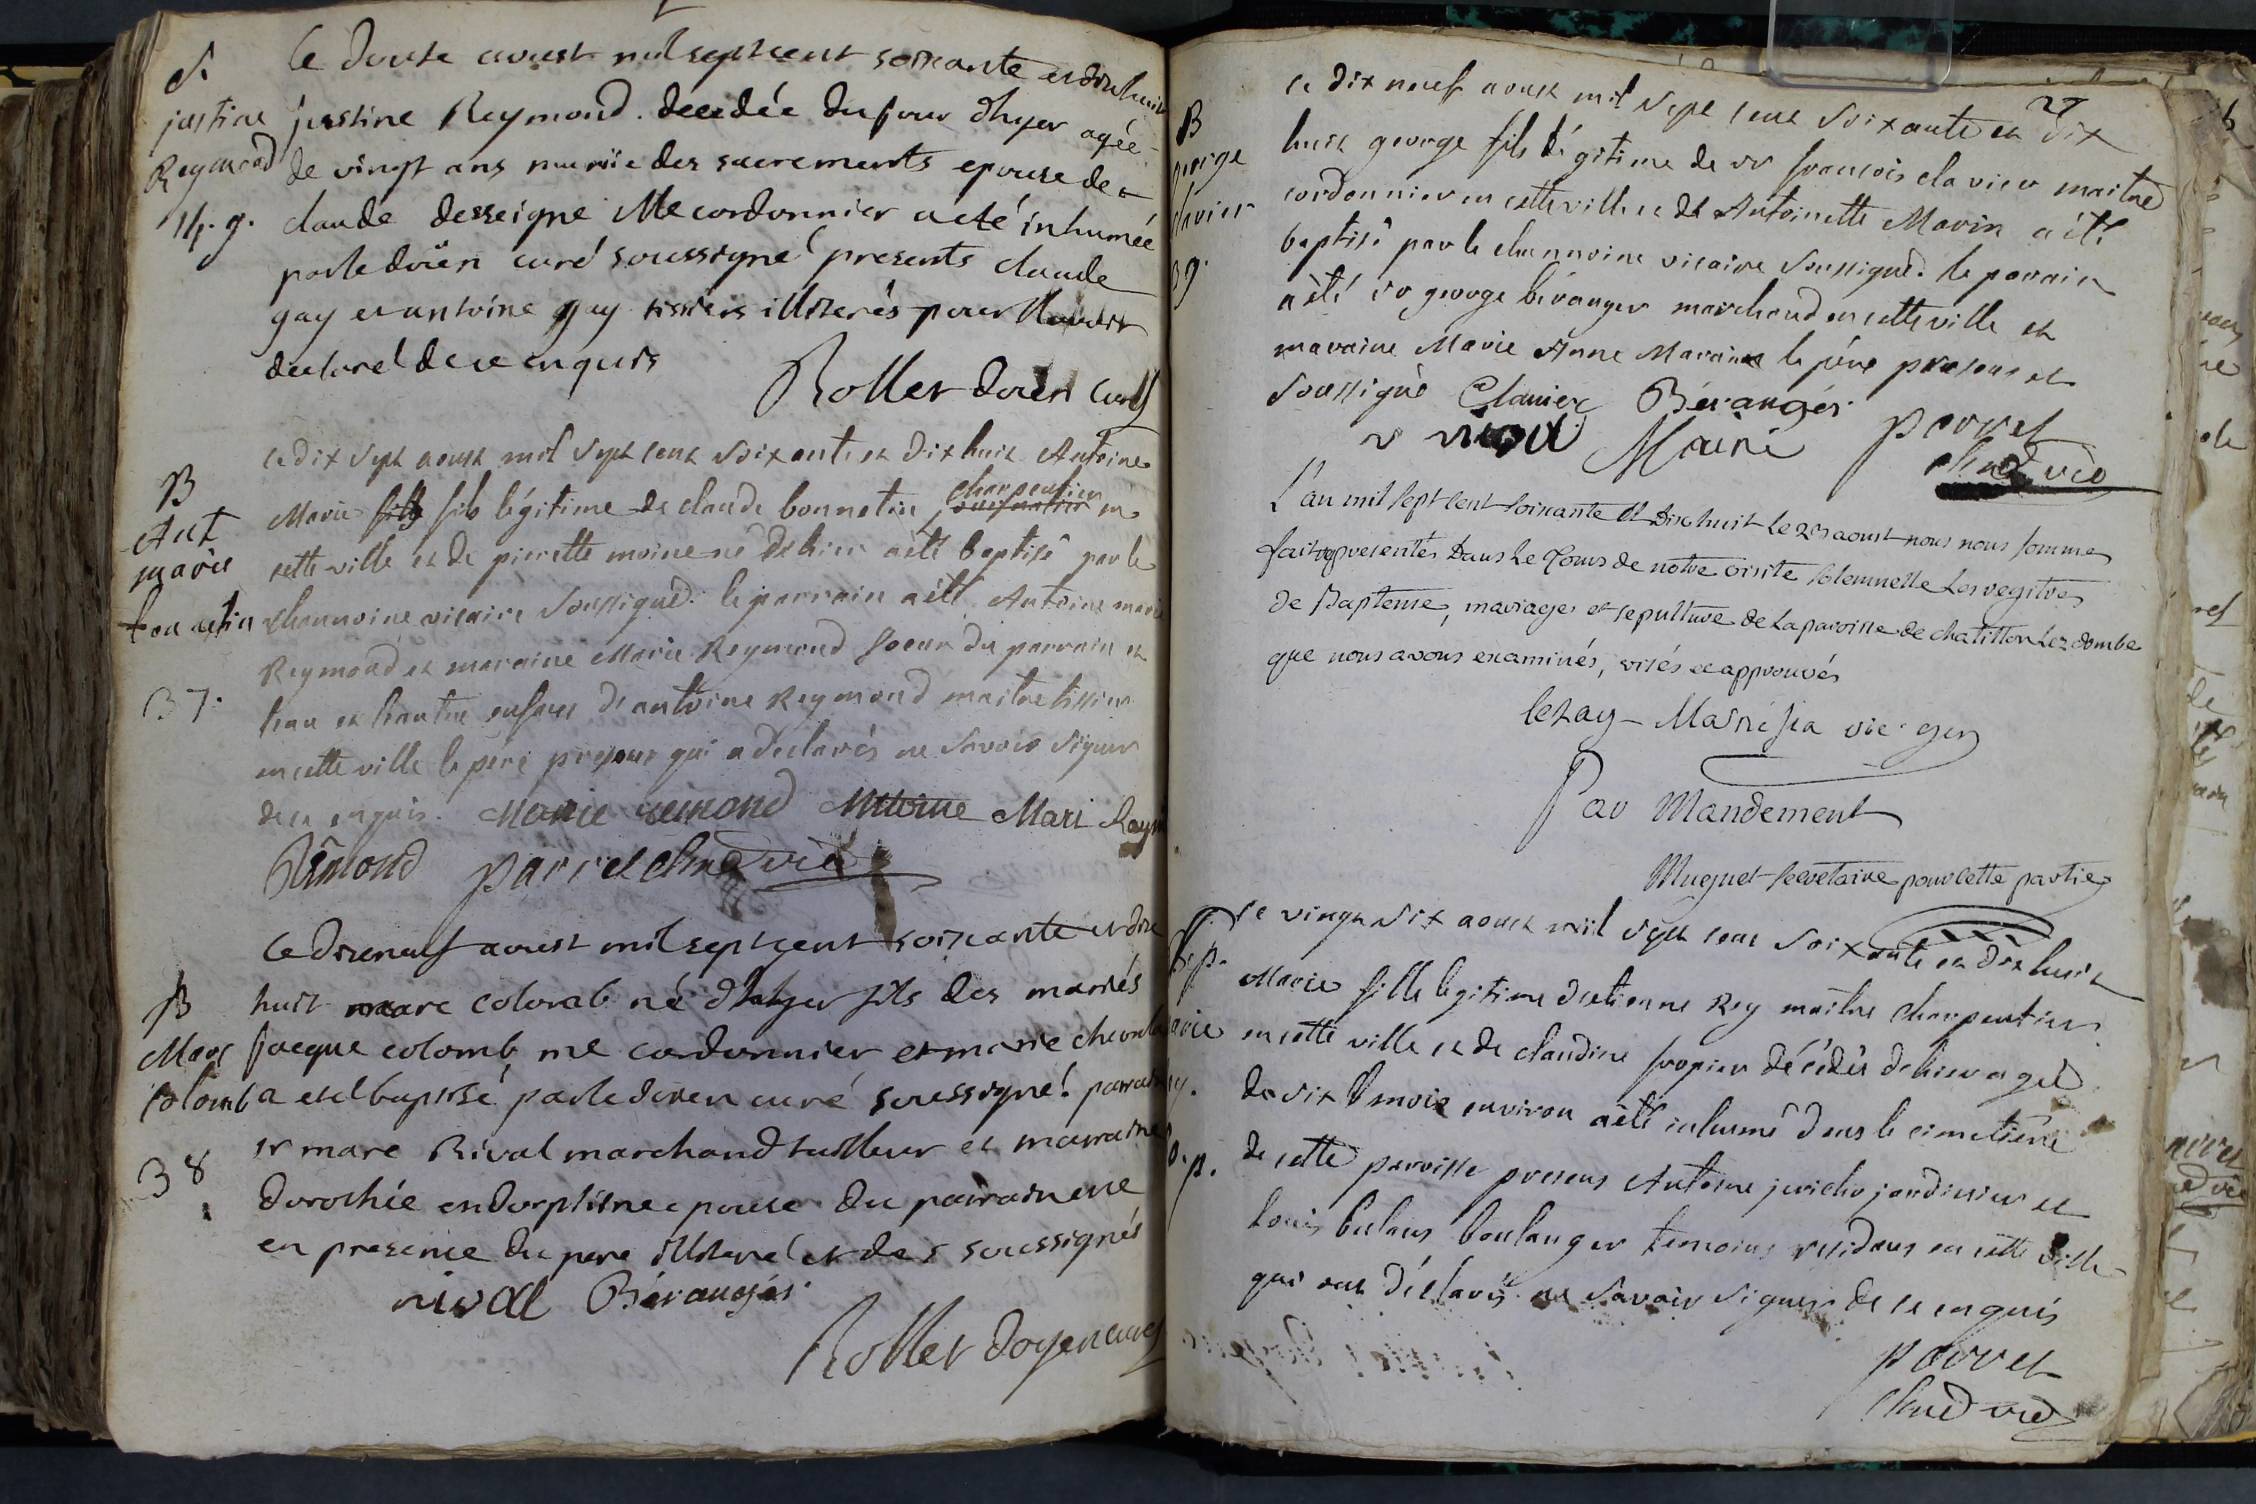 S.
justine
Reymond
14. g.
Ce douse aoust mil sept cent soixante et dix huit
justine Reymond decedée du jour d'hyer agée
de vingt ans munie des sacrements epouse de
claude desseigne Me cordonnier a eté inhumée
par le doïen curé soussigné presents claude
gay et antoine gay tissiers illiterés pour l'avoir
declaré de ce enquis
Rollet doïen curé
B
Ant
marie
bonnetin
37.
ce dix sept aoust mil sept cent soixante et dix huit Antoine
Marie fils légitime de claude bonnetin charpentier en
cette ville et de pierrette moine né de hier a été baptisé par le
channoine vicaire soussigné. le parrain a été Antoine marie
Reymond et maraine Marie Reymond soeur du parrain et
l'un et l'autre enfans d'antoine Reymond maitre tissier
en cette ville le péré present qui a declarés ne savoir signer
de ce enquis. Marie remond Antoine Mari Raymond
Rêmond parret chne vic
B
Marc
Colomb
38
Ce dixneuf aoust mil sept cent soixante et dix
huit marc colomb né d'hyer fils des mariés
jacque colomb me cordonnier et marie
a eté baptisé par le doïen curé soussigné parrain
sr marc Rival marchand tailleur et marraine
dorothée endorphine epouse du parrain
en presence du pere illiteré et des soussignés
rival Bérangér
Rollet doyen curé
27
B
george
clavier
39.
ce dix neuf aoust mil sept cent soixante et dix
huit george fils légitime de sr francois clavier maitre
cordonnier en cette ville et de Antoinette Marin a été
baptisé par le channoine vicaire soussigné. le parain
a été sr george béranger marchand en cette ville et
maraine Marie Anne Maraine le père present et
soussigné Clavier Béranger
Mairé parret
chne vic
L'an mil sept cent soixante et dix huit le 25 aoust nous nous somme
fait représenter dans le cours de notre visite solemnelle les registres
de Bapteme, mariages et sepulture de la paroisse de chatillon Lez dombe
que nous avons examinés, visés et approuvés
lezay-Marnésia vic. gen
Par Mandement
Muguet secretaire pour cette partie
S. p.
ce vingt six aoust mil sept cent soixante et dix huit
Marie fille légitime d'etienne Rey maitre charpentier
en cette ville et de claudine fropier décédée de hier agée
de six mois environ a été inhumé dans le cimetière
de cette paroisse presens Antoine jardinier et
Louis boulanger temoins residans en cette ville
qui ont déclarés ne savoir signer de ce enquis
parret
chne vic